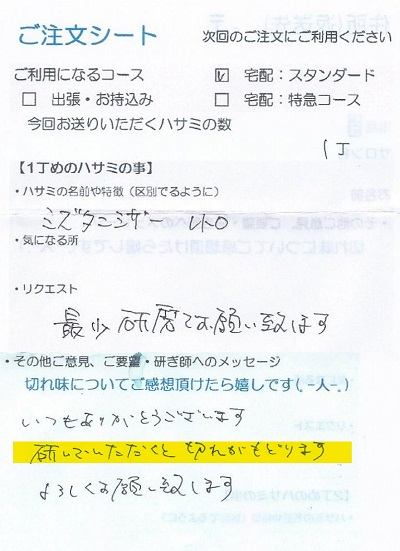 ご注文シート 次回のご注文にご利用ください
ご利用になるコース ☑ 宅配：スタンダード
□ 出張・お持込み □ 宅配：特急コース
今回お送りいただくハサミの数
1丁
【1丁めのハサミの事】
・ハサミの名前や特徴（区別でるように）
ミズタニシザー
・気になる所
・リクエスト
最少研磨でお願い致します
・その他ご意見、ご要望・研ぎ師へのメッセージ
切れ味についてご感想頂けたら嬉しです(.-人-.)
いつもありがとうございます
研していただくと 切れがもどります
よろしくお願い致します